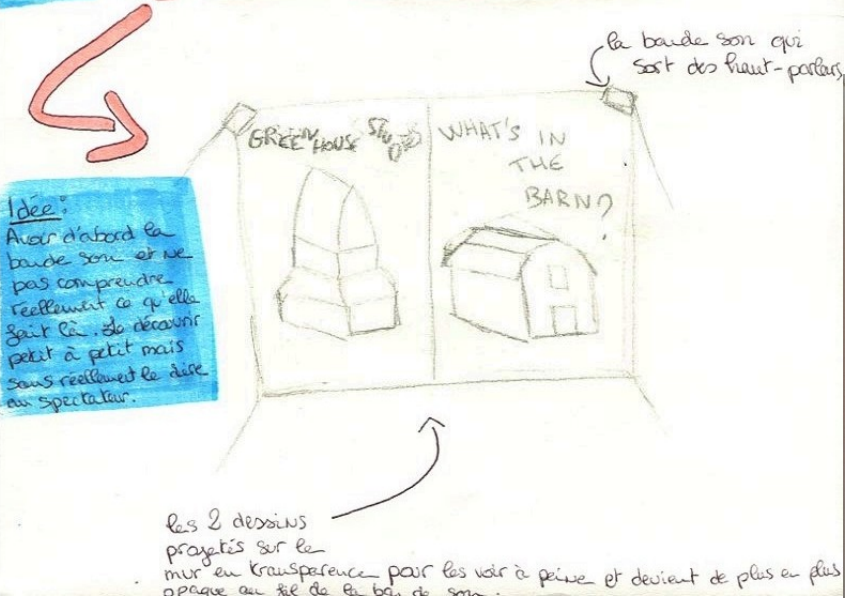 la bande son qui
sort des haut-parleurs
GREEN HOUSE STUDIOS
WHAT'S IN
THE
BARN?
Idée :
Avoir d'abord la
bande son et ne
pas comprendre
réellement ce qu'elle
fait là. Le découvrir
petit à petit mais
sans réellement le dire
au spectateur.
les 2 dessins
projetés sur le
mur en transparence pour les voir à peine et devient de plus en plus
opaque au fil de la bande son.